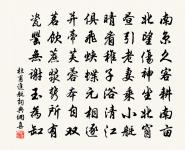 南京久客耕南畝
北望傷神坐北窗
晝引老妻乘小艇
晴看稚子浴清江
俱飛蛺蝶元相逐
並蒂芙蓉本自雙
茗飲蔗漿攜所有
瓷罌無謝玉為缸
杜甫進艇詞典網